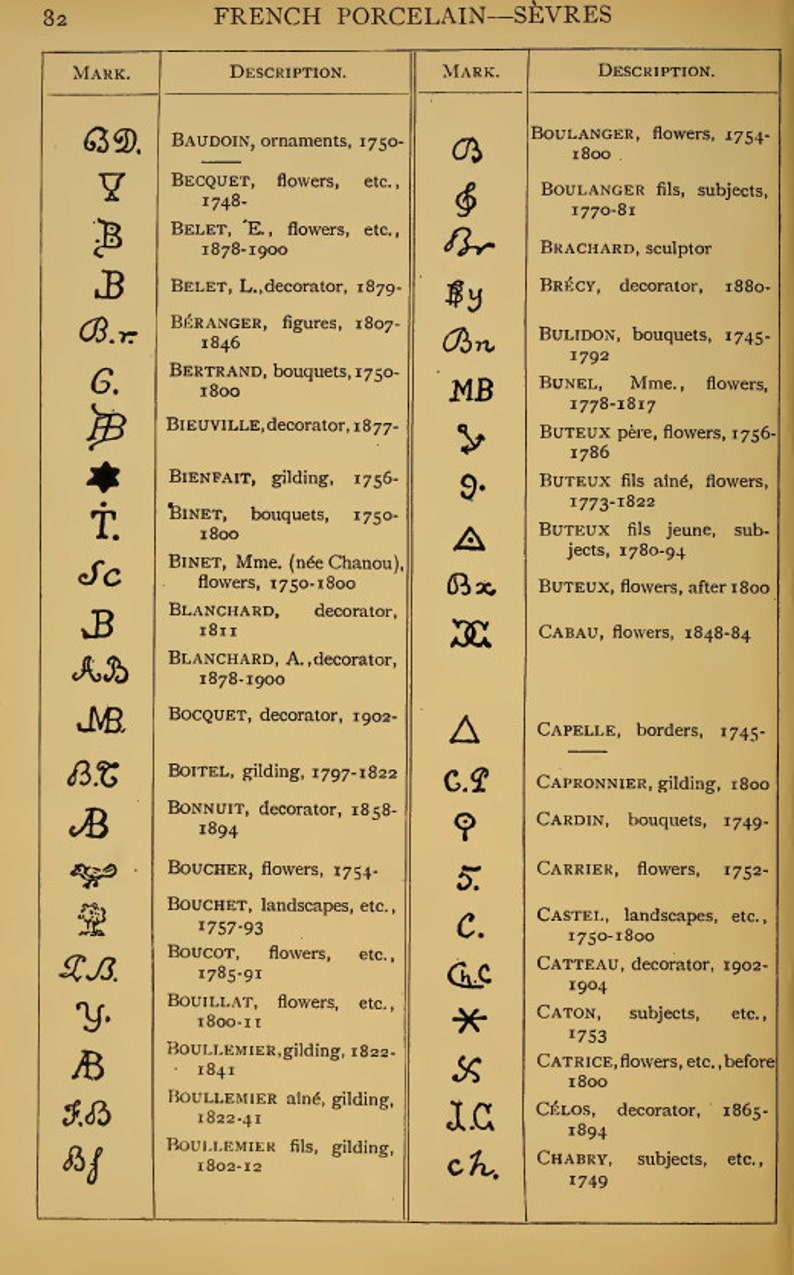 82
FRENCH PORCELAIN—SÈVRES
MARK.
DESCRIPTION.
BD.
BAUDOIN, ornaments, 1750-
BECQUET, flowers, etc.,
1748-
B
BELET, E., flowers, etc.,
1878-1900
JB
BELET, L., decorator, 1879-
B.r.
BÉRANGER, figures, 1807-
1846
G.
BERTRAND, bouquets, 1750-
1800
BIEUVILLE, decorator, 1877-
BIENFAIT, gilding, 1756-
T.
BINET, bouquets, 1750-
1800
Sc
BINET, Mme. (née Chanou),
flowers, 1750-1800
JB
BLANCHARD, decorator,
1811
AB
BLANCHARD, A., decorator,
1878-1900
MB.
BOCQUET, decorator, 1902-
B.T
BOITEL, gilding, 1797-1822
AB
BONNUIT, decorator, 1858-
1894
BOUCHER, flowers, 1754-
BOUCHET, landscapes, etc.,
1757-93
BOUCOT, flowers, etc.,
1785-91
Y.
BOUILLAT, flowers, etc.,
1800-11
BOULLEMIER, gilding, 1822-
1841
F.B
BOULLEMIER aîné, gilding,
1822-41
Bf
BOULLEMIER fils, gilding,
1802-12
MARK.
DESCRIPTION.
B
BOULANGER, flowers, 1754-
1800
BOULANGER fils, subjects,
1770-81
Br
BRACHARD, sculptor
By
BRÉCY, decorator, 1880-
Bn
BULIDON, bouquets, 1745-
1792
MB
BUNEL, Mme., flowers,
1778-1817
BUTEUX père, flowers, 1756-
1786
9.
BUTEUX fils aîné, flowers,
1773-1822
BUTEUX fils jeune, sub-
jects, 1780-94
Bx
BUTEUX, flowers, after 1800
CABAU, flowers, 1848-84
CAPELLE, borders, 1745-
C.P
CAPRONNIER, gilding, 1800
CARDIN, bouquets, 1749-
5.
CARRIER, flowers, 1752-
C.
CASTEL, landscapes, etc.,
1750-1800
Ch.C
CATTEAU, decorator, 1902-
1904
CATON, subjects, etc.,
1753
CATRICE, flowers, etc., before
1800
J.C
CÉLOS, decorator, 1865-
1894
ch.
CHABRY, subjects, etc.,
1749